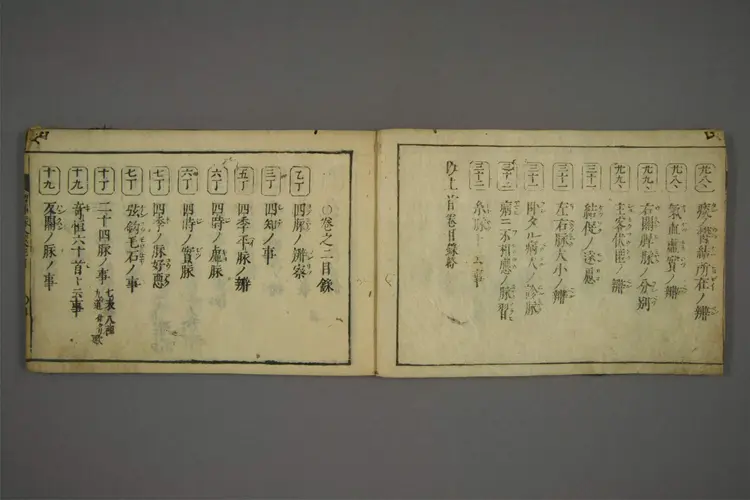 廿八 積聚結所在ノ辨
廿八 氣血虛實ノ辨
廿九 右關脾脉ノ分別
廿九 主客伏匿ノ辨
三十 結促ノ遠慮
三十一 左右脉大小ノ辨
三十一 病人ノ診脉
三十二 病ニ不相應ノ脉習
三十二 糸脉ト云事
以上首卷目錄終
○卷之二目錄
乙丁 四脉ノ辨察
三丁 四知ノ事
五丁 四季平脉ノ辨
六丁 四時ノ虛脉
六丁 四時ノ實脉
七丁 四季ノ脉好惡
七丁 弦鈎毛石ノ事
十丁 二十四脉ノ事 七表 八裏 九道 歌
十九 奇恒六十首ト云事
十九 反關ノ脉ノ事